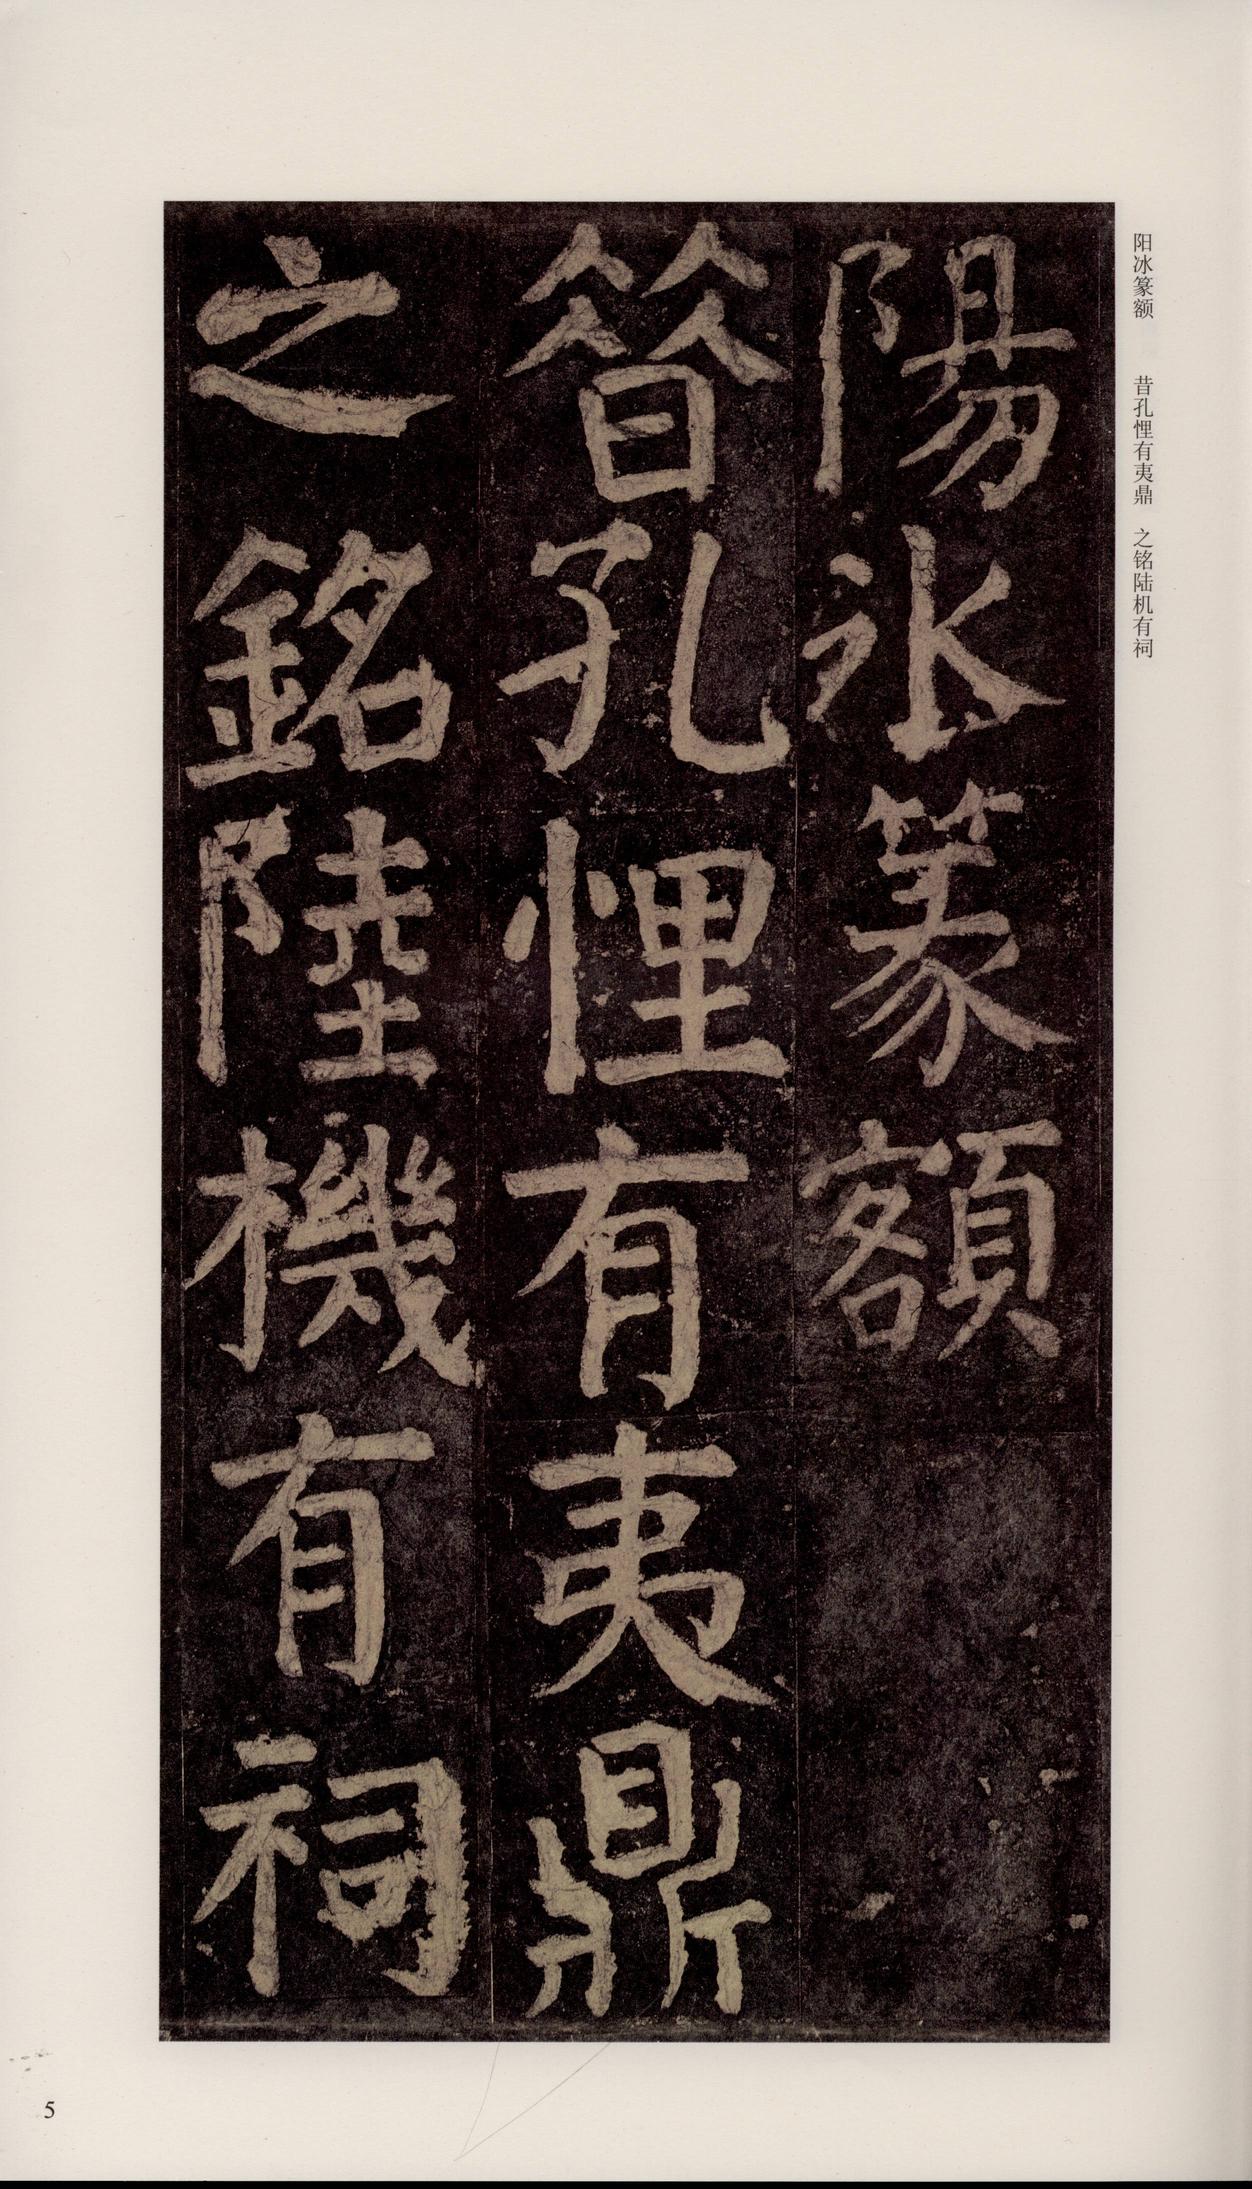 阳冰篆额　昔孔悝有夷鼎　之铭陆机有祠
陽冰篆額
筤孔悝有夷鼎
之銘陸機有祠
5